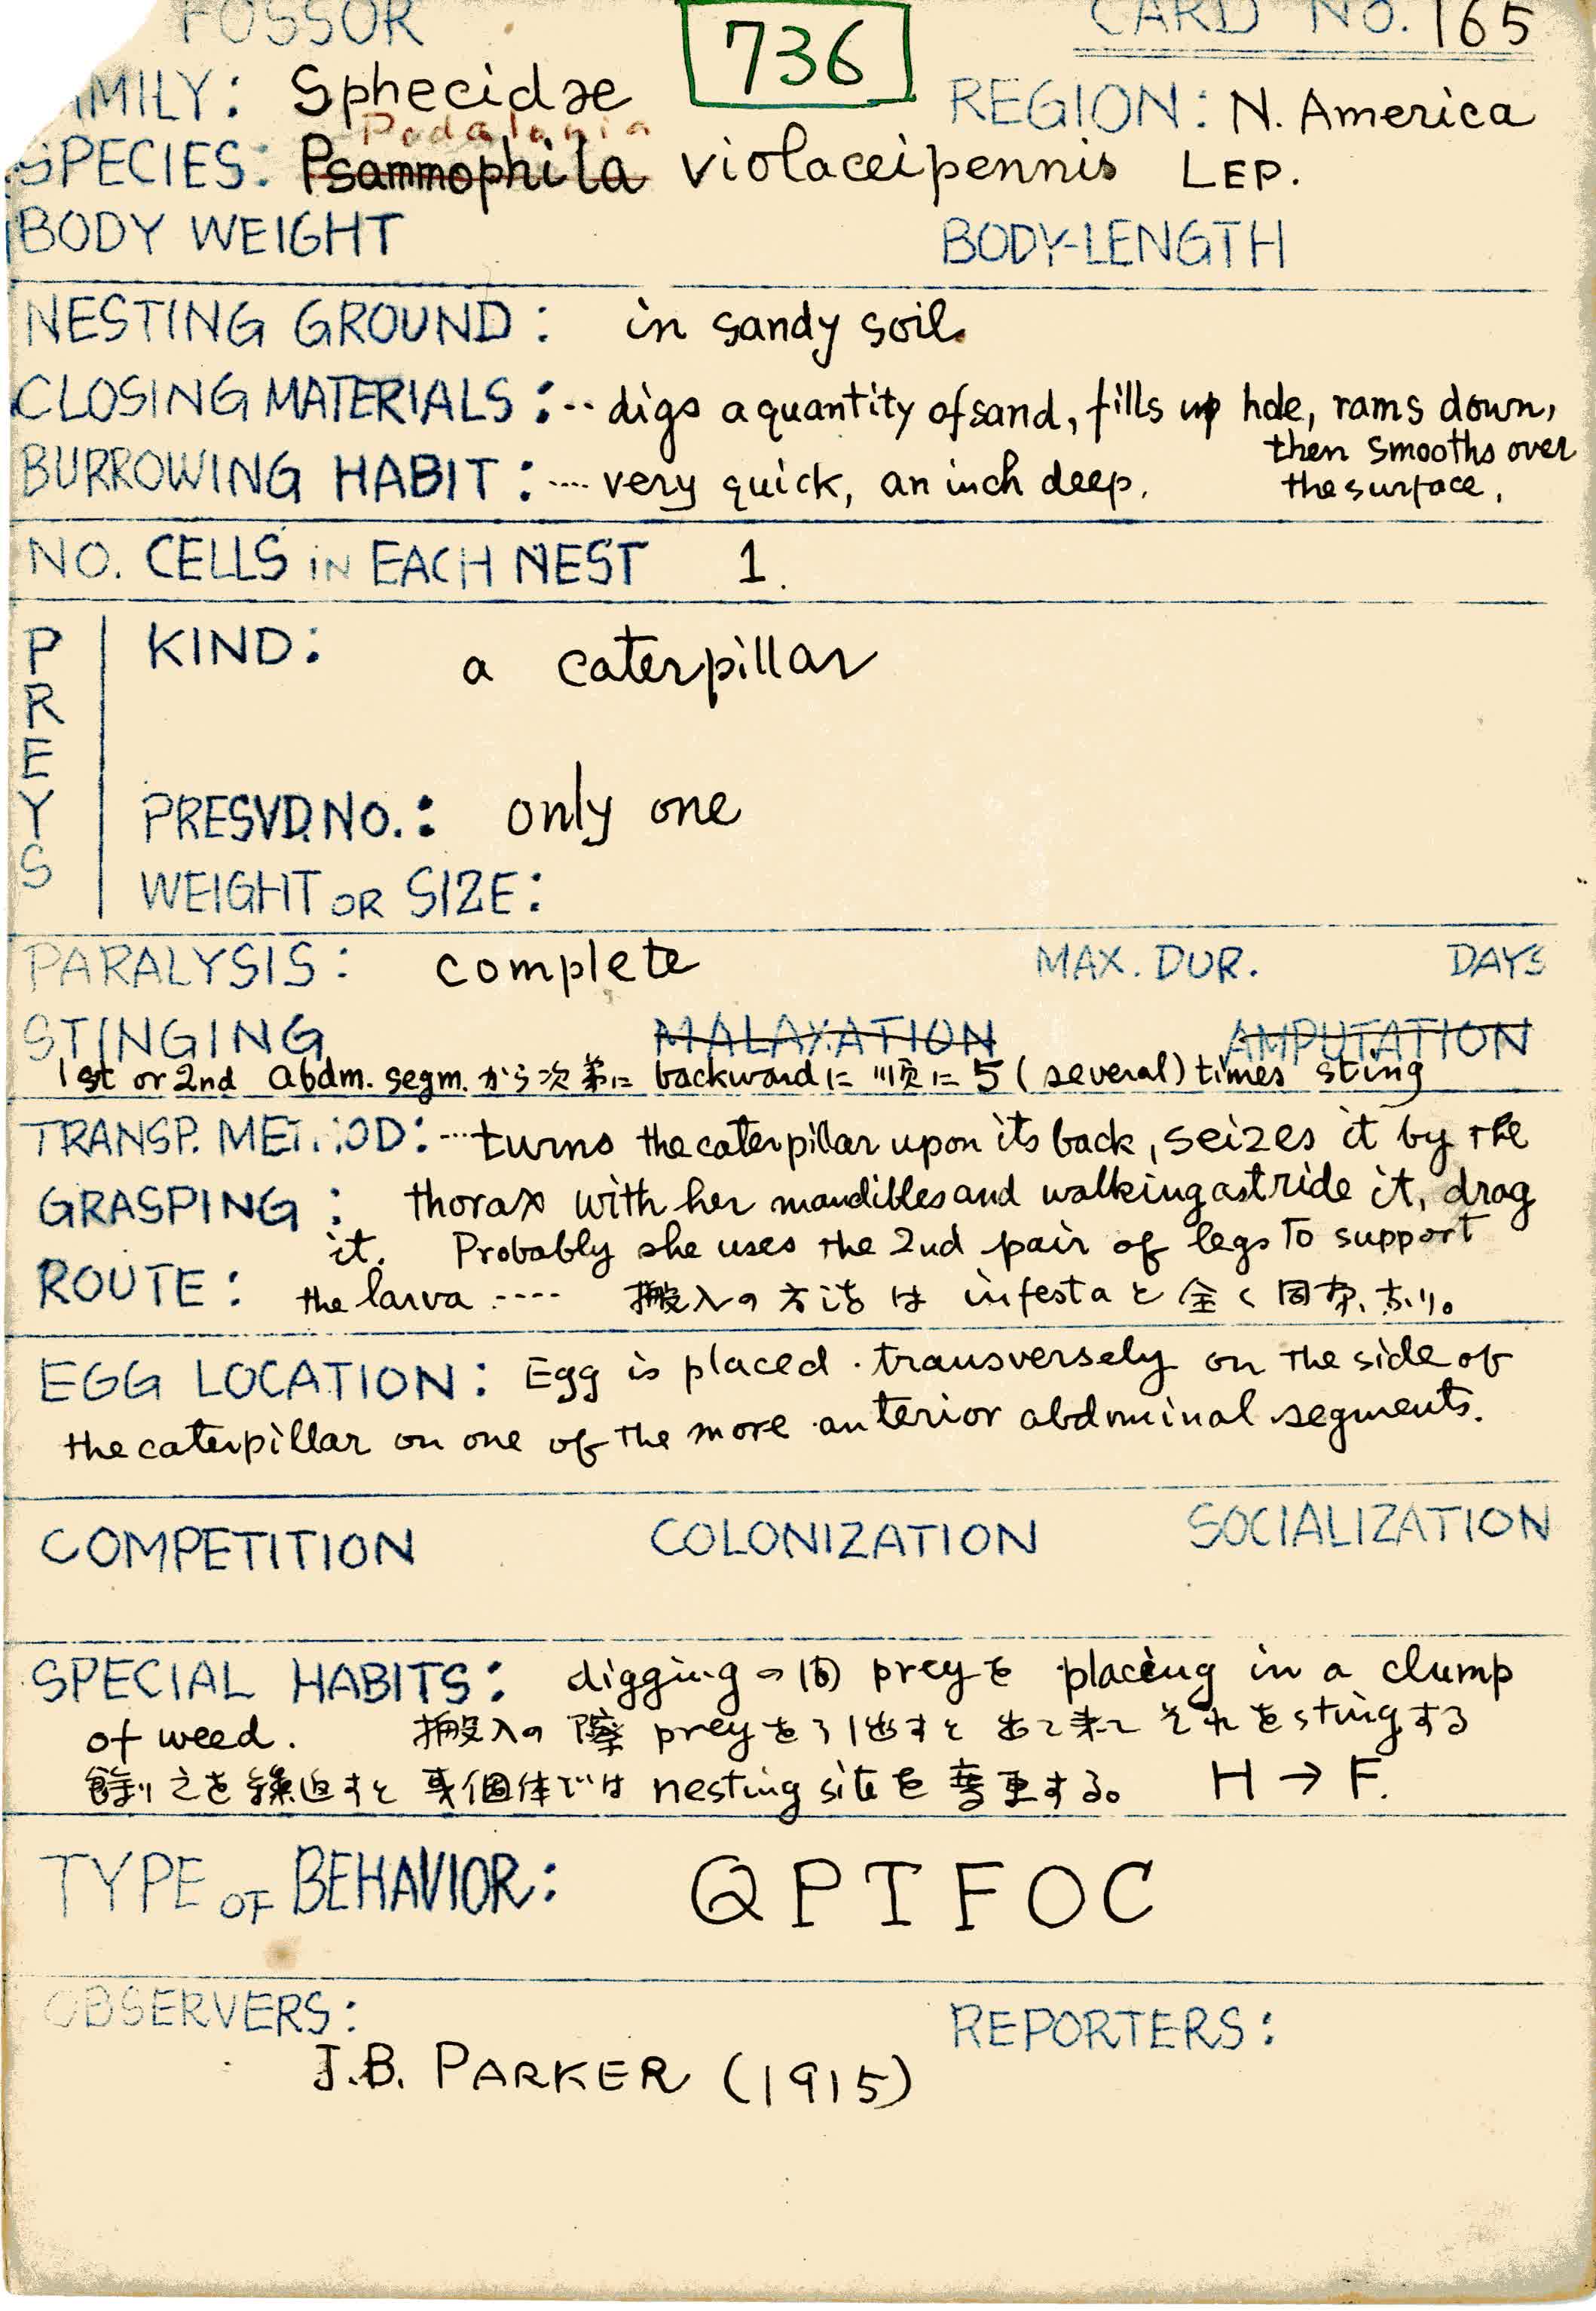 FOSSOR 736 CARD NO. 165
FAMILY: Sphecidae REGION: N. America
Podalonia
SPECIES: Psammophila violaceipennis LEP.
BODY WEIGHT BODY-LENGTH
NESTING GROUND: in sandy soil.
CLOSING MATERIALS: ·· digs a quantity of sand, fills up hole, rams down,
then smooths over
BURROWING HABIT: ···· very quick, an inch deep. the surface.
NO. CELLS IN EACH NEST 1.
PREYS
KIND: a caterpillar
PRESVD. NO.: only one
WEIGHT OR SIZE:
PARALYSIS: complete MAX. DUR. DAYS
STINGING MALAXATION AMPUTATION
1st or 2nd abdm. segm. から次第に backward に順に 5 (several) times sting
TRANSP. METHOD: ···turns the caterpillar upon its back, seizes it by the
GRASPING: thorax with her mandibles and walking astride it, drag
it. Probably she uses the 2nd pair of legs to support
ROUTE: the larva ---- 搬入の方法は infesta と全く同様なり。
EGG LOCATION: Egg is placed transversely on the side of
the caterpillar on one of the more anterior abdominal segments.
COMPETITION COLONIZATION SOCIALIZATION
SPECIAL HABITS: digging の間 prey を placing in a clump
of weed. 搬入の際 prey を引出すと出て来て それを sting する
余り之を繰返すと 某個体では nesting site を変更する。 H → F.
TYPE OF BEHAVIOR: QPTFOC
OBSERVERS: REPORTERS:
J.B. PARKER (1915)